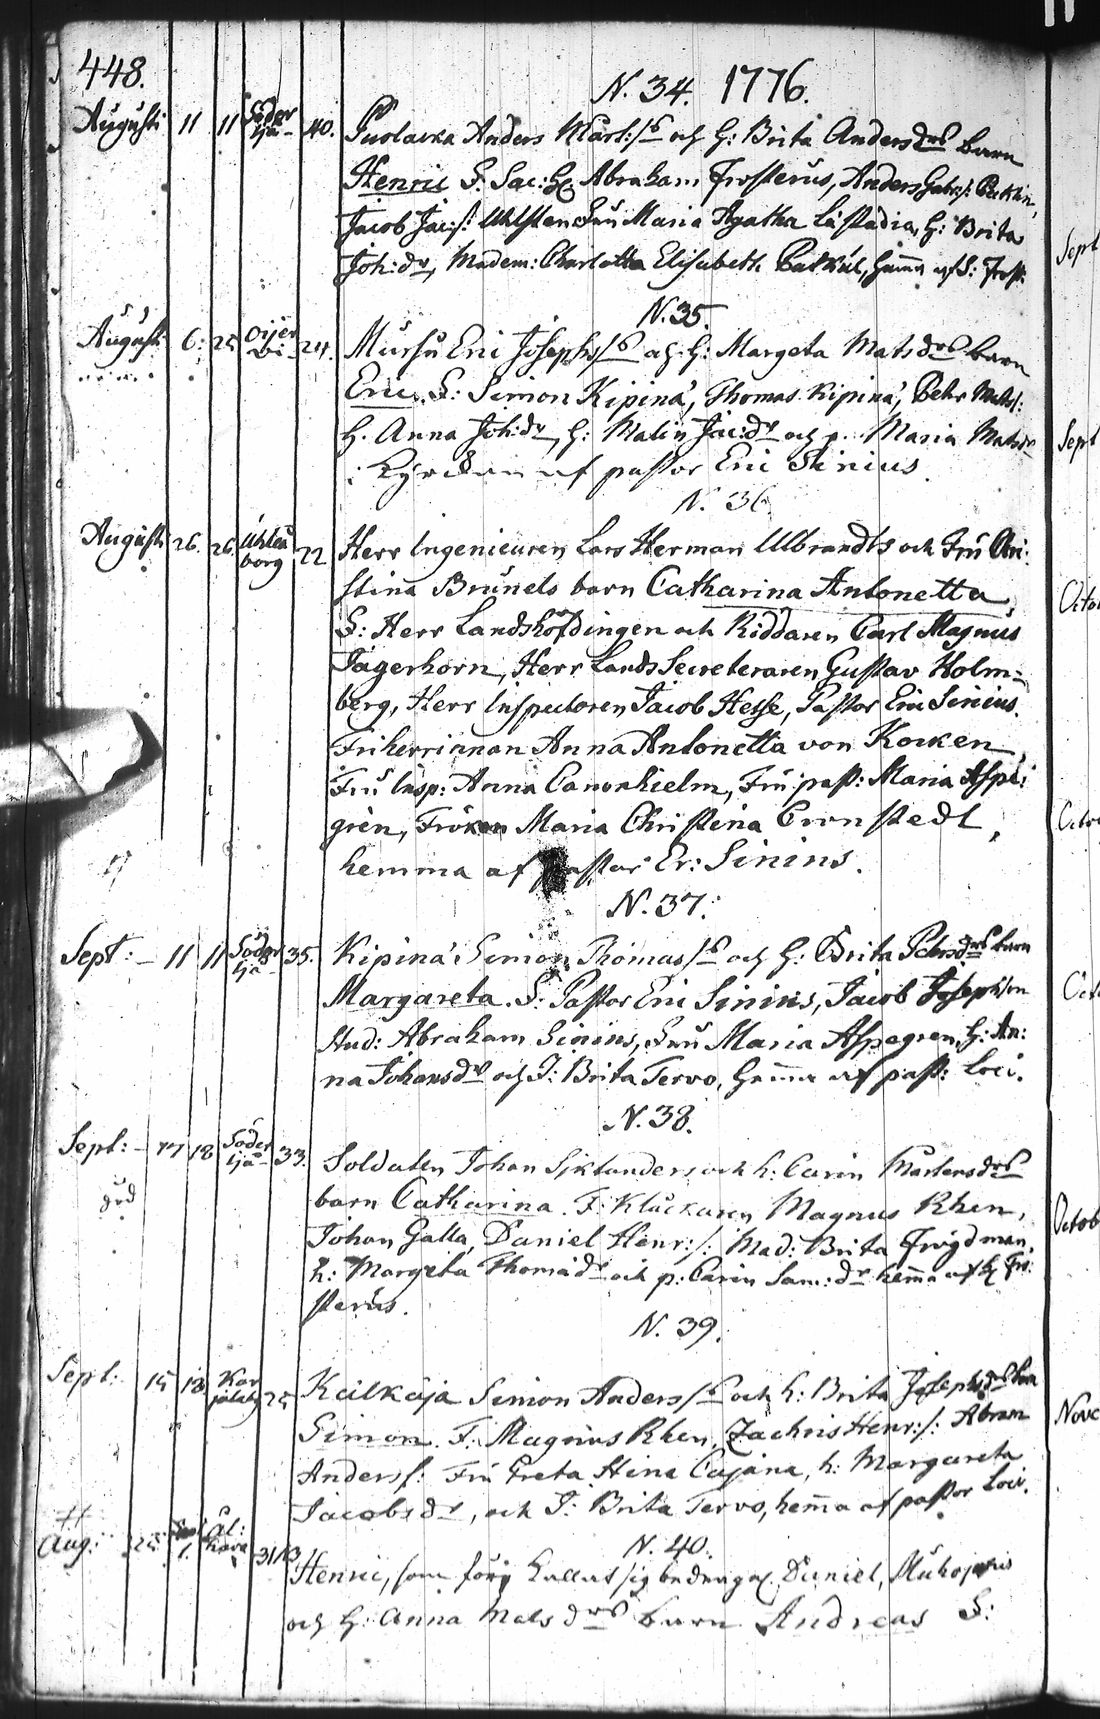 448.
N. 34. 1776.
Augusti 11 11 Söder kjä- 40. Anders Mårt:s och H: Brita Andersdrs barn
Henric F: Sac: Abraham Frosterus, Anders
Jacob Jac:s: Uhlsten Fru Maria Agatha Læstadia, H: Brita
Joh:dr, Madem: Charlotta Elisabeth
N. 35.
Augusti 6. 25 24. Mursu Eric Josephs och H: Margeta Matsdrs barn
Eric. F: Simon Kipinä, Thomas Kipinä, Pehr Mats:
H. Anna Joh:dr, H: Malin Jac:dr och p. Maria Matsdr
i Kyrckan af pastor Eric Sinius
N. 36
Augusti 26. 26. Uhleå borg 22 Herr Ingenieuren Lars Herman Ulbrandts och Fru Chri:
stina Brunels barn Catharina Antonetta,
F: Herr Landshöfdingen och Riddaren Carl Magnus
Jägerhorn, Herr Lands Secreteraren Gustav Holm=
berg, Herr Inspectoren Jacob Hesse, Pastor Eric Sinius.
Friherrinnan Anna Antonetta von Kocken,
Fru Insp: Anna Canonhielm, Fru past: Maria Aspe:
gren, Fröken Maria Christina Cronstedt,
hemma af pastor Er: Sinius.
N. 37.
Sept: - 11 11 Söder kjä 35. Kipinä Simon Thomas och H: Brita Pehrsdrs barn
Margareta. F: Pastor Eric Sinius, Jacob Josephson
Stud: Abraham Sinius, Fru Maria Aspegren, H: An:
na Johansdr och J: Brita Tervo, hemma af past: Loci.
N. 38.
Sept: - 17 18 Söder kjä- 33. Soldaten Johan Siklanders och h: Carin Mårtensdrs
barn Catharina. F: Kluckaren Magnus Rhen,
Johan Galla, Daniel Henr:s: Mad: Brita Frigdman,
h: Margeta Thomædr och p: Carin Sam:dr hema af H Fro:
sterus.
N. 39.
Sept: 15 18 Kar 25 Kailkaja Simon Anders och h: Brita Josephsdrs barn
Simon. F: Magnus Rhen, Zachris Henr:s: Abram
Anders: Fru Greta Stina Cajana, h: Margareta
Jacobsdr, och J: Brita Tervo, hema af pastor Loci.
N. 40.
Aug: 25 Sept 1. 31/13 Henric, som kallat sig Daniel,
och H: Anna Matsdrs barn Andreas F:
Sept
Sept
Octo
Octo
Octo
Octob
Nove